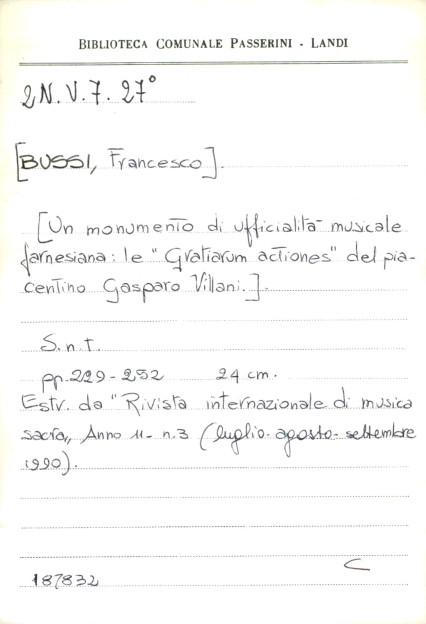 BIBLIOTECA COMUNALE PASSERINI - LANDI
2N.V.7.27°
[BUSSI, Francesco].
[Un monumento di ufficialità musicale
farnesiana: le "Gratiarum actiones" del pia-
centino Gasparo Villani.].
S.n.t.
pp. 229-252 24 cm.
Estr. da "Rivista internazionale di musica
sacra,, Anno 11- n.3 (luglio-agosto-settembre
1990).
C
187832